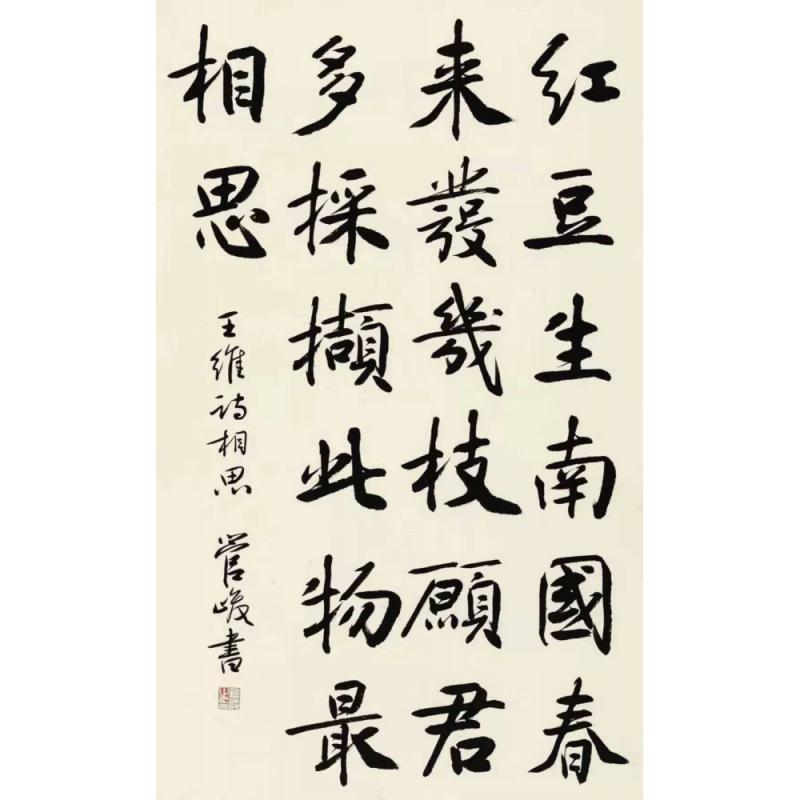 紅豆生南國春
來發幾枝願君
多採擷此物最
相思
王維詩相思 管峻書